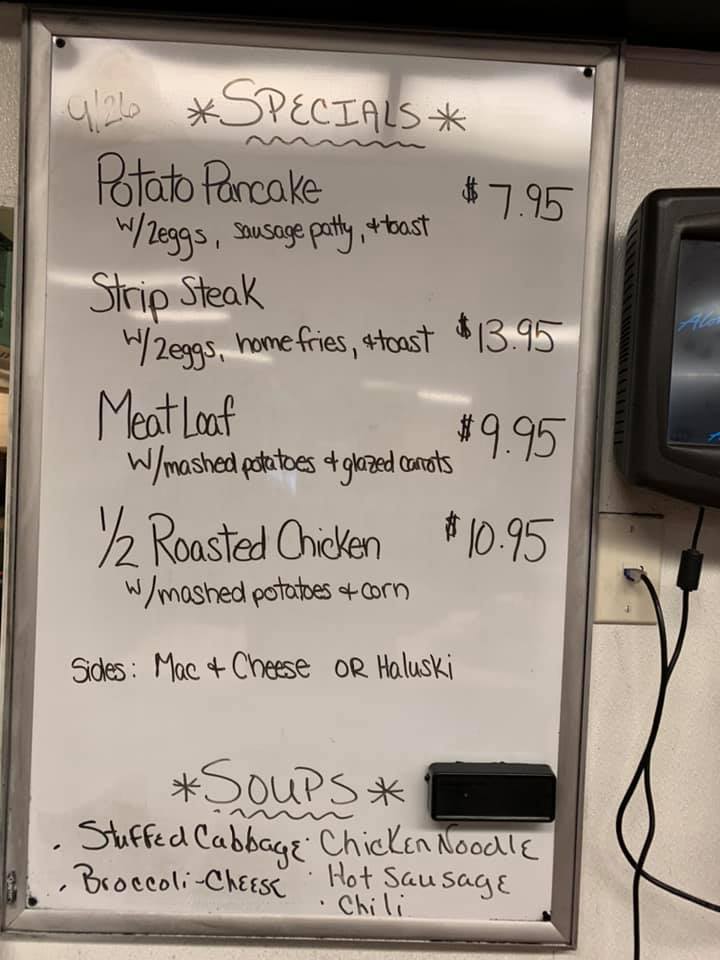 9/26 *SPECIALS*
Potato Pancake $7.95
w/2eggs, sausage patty, + toast
Strip Steak
w/2eggs, home fries, + toast $13.95
Meat Loaf $9.95
w/mashed potatoes + glazed carrots
1/2 Roasted Chicken $10.95
w/mashed potatoes + corn
Sides: Mac + Cheese OR Haluski
*SOUPS*
· Stuffed Cabbage · Chicken Noodle
· Broccoli-Cheese · Hot Sausage
· Chili